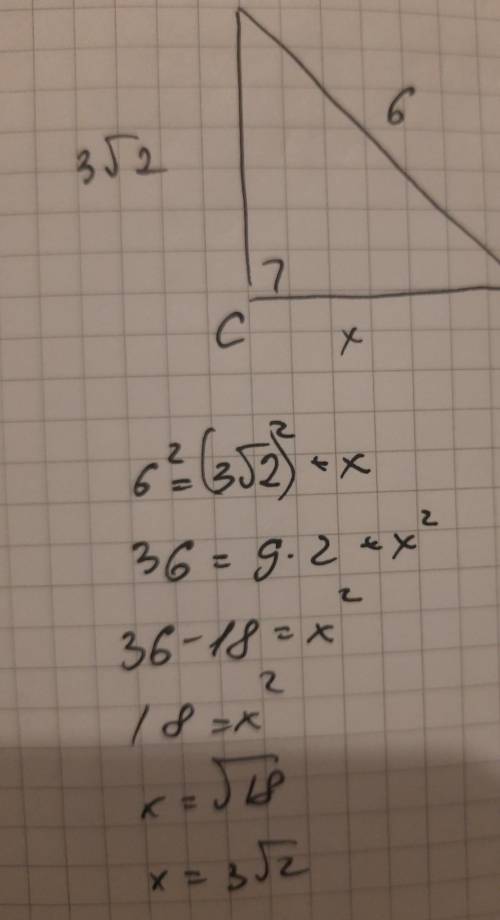 6
3√2
C
x
6² = (3√2)² + x
36 = 9·2 + x²
36 - 18 = x²
18 = x²
x = √18
x = 3√2